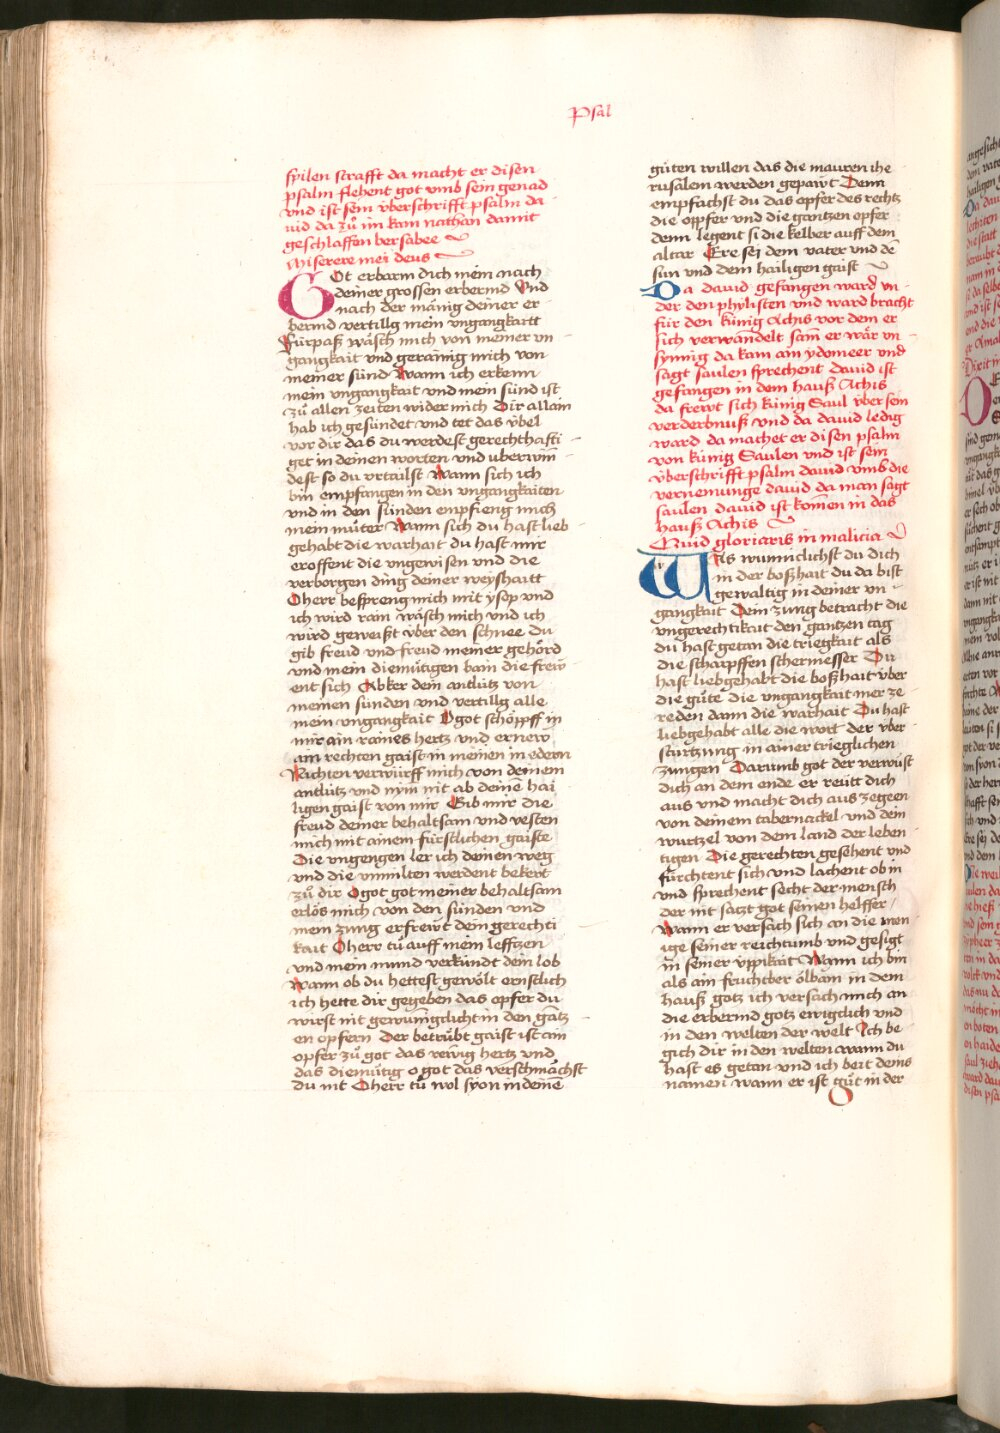 Psal
spilen strafft da macht er disen
psalm flehent got vmb sein genad
vnd ist sein vberschrifft psalm da
uid da zů im kam nathan damit
geschlaffen bersabee
Miserere mei deus
GOt erbarm dich mein nach
deiner grossen erbermd Vnd
nach der mänig deiner er
bermd vertillg mein vngangkaitt
Fürpaß wäsch mich von meiner vn
gangkait vnd geraínig mich von
meiner sünd Wann ich erkenn
mein vngangkait vnd mein sünd ist
zů allen zeiten wider mich Dir allain
hab ich gesündet vnd tet das vbel
vor dir das du werdest gerechthafti
get in deinen worten vnd vberwin
dest so du vrtailst Wann sich ich
bin empfangen in den vngangkaiten
vnd in den sünden empfieng mich
mein můter Wann sich du hast lieb
gehabt die warhait du hast mir
eroffent die vngewisen vnd die
verborgen ding deiner weyshaitt
O herr bespreng mich mit ysop vnd
ich wird rain wäsch mich vnd ich
wird geweißt vber den schnee Du
gib freud vnd freud meiner gehörd
vnd mein diemütigen bain die frew
ent sich Abker dein antlütz von
meinen sünden vnd vertillg alle
mein vngangkait O got schöpff in
mir ain raines hertz vnd ernew
ain rechten gaist in meinen in ödern
Nichten verwürff mich von deinem
antlütz vnd nym nit ab deinē hai
ligen gaist von mir Gib mir die
freud deiner behaltsam vnd vesten
mich mit ainem fürstlichen gaiste
Die vngengen ler ich deinen weg
vnd die vnmilten werdent bekert
zů dir O got got meiner behaltsam
erlös mich von den sünden vnd
mein zung erfrewt dein gerechti
kait O herr tů auff mein leffczen
vnd mein mund verkündt dein lob
Wann ob du hettest gewölt ernstlich
ich hette dir gegeben das opfer du
wirst nit gewunigclicht in den gātz
en opfern Der betrübt gaist ist ain
opfer zů got das rewig hertz vnd
das diemütig o got das verschmächst
du nit O herr tů wol syon in deinē
güten willen das die mauren ihe
rusalem werden gepawt Denn
empfachst du das opfer des rechtz
die oppfer vnd die gantzen opfer
denn legent si die kelber auff dem
altar Ere sei dem vater vnd dē
sun vnd dem hailigen gaist
Da dauid gefangen ward vn
der den phylisten vnd ward bracht
für den künig Achis vor dem er
sich verwandelt sam er wär vn
synnig da kam ain ydomeer vnd
sagt saulen sprechent dauid ist
gefangen in dem hauß Achis
da frewt sich künig Saul vber sein
verderbnuß vnd da dauid ledig
ward da machet er disen psalm
von künig Saulen vnd ist sein
vberschrifft psalm dauid vmb die
vernemunge dauid da man sagt
saulen dauid ist komen in das
hauß Achis
Quid gloriaris in malicia
WAs wunniclichst du dich
in der boßhait du da bist
gewaltig in deiner vn
gangkait Dein zung betracht die
vngerechtikait den gantzen tag
du hast getan die triegkait als
die scharpffen schermesser Du
hast liebgehabt die boßhait vber
die güte die vngangkait mer ze
reden dann die warhait Du hast
liebgehabt alle die wort der vber
stürtzung in ainer trieglichen
zungen Darumb got der verwüst
dich an dem ende er reütt dich
aus vnd macht dich aus zegeen
von deinem tabernackel vnd dein
wurtzel von dem land der leben
tigen Die gerechten gesehent vnd
fürchtent sich vnd lachent ob in
vnd sprechent secht der mensch
der nit satzt got seinen helffer
Wann er versach sich an die men
ige seiner reichtumb vnd gesigt
in seiner vppikait Wann ich bin
als ain fruchtber ölbam in dem
hauß gotz ich versach mich an
die erbermd gotz ewigclich vnd
in den welten der welt Ich be
gich dir in den welten wann du
hast es getan vnd ich beit deins
namen wann er ist gůt in der